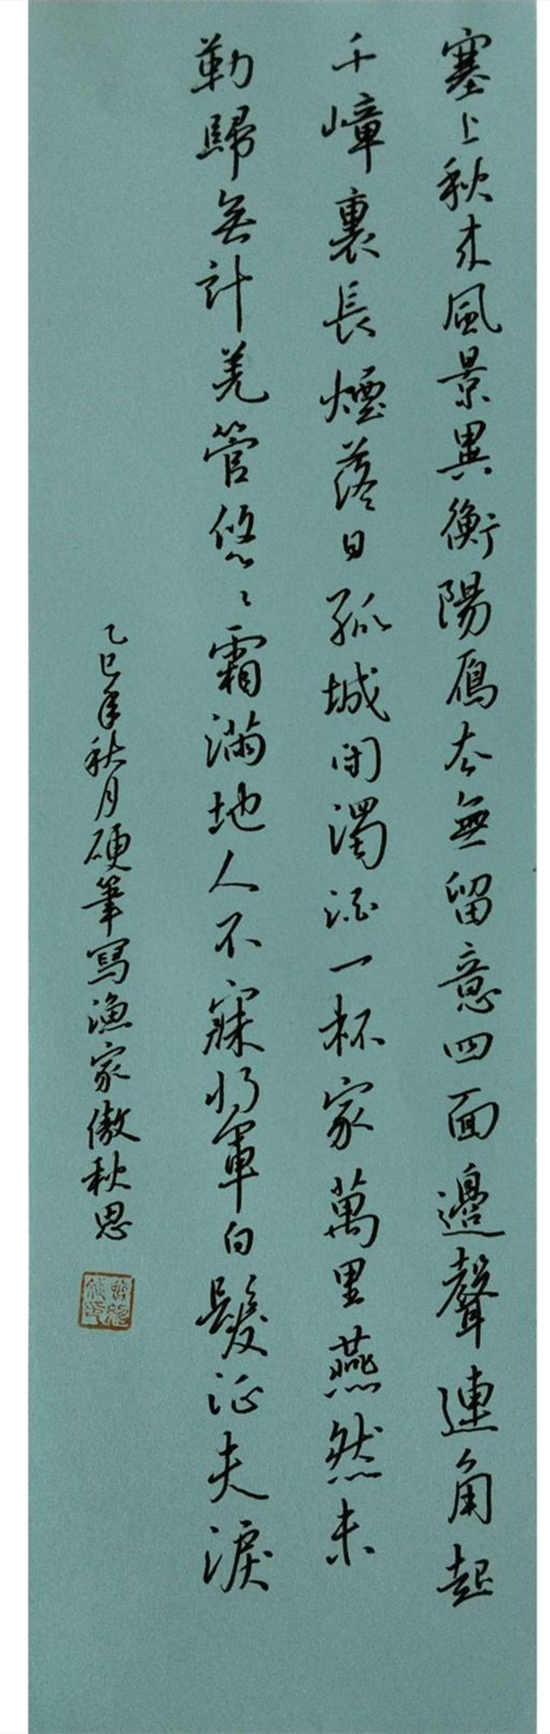 塞上秋来風景異衡陽雁去無留意四面邊聲連角起
千嶂裏長煙落日孤城閉濁酒一杯家萬里燕然未
勒歸無計羌管悠〻霜滿地人不寐将軍白髮征夫淚
乙巳年秋月硬筆寫漁家傲秋思